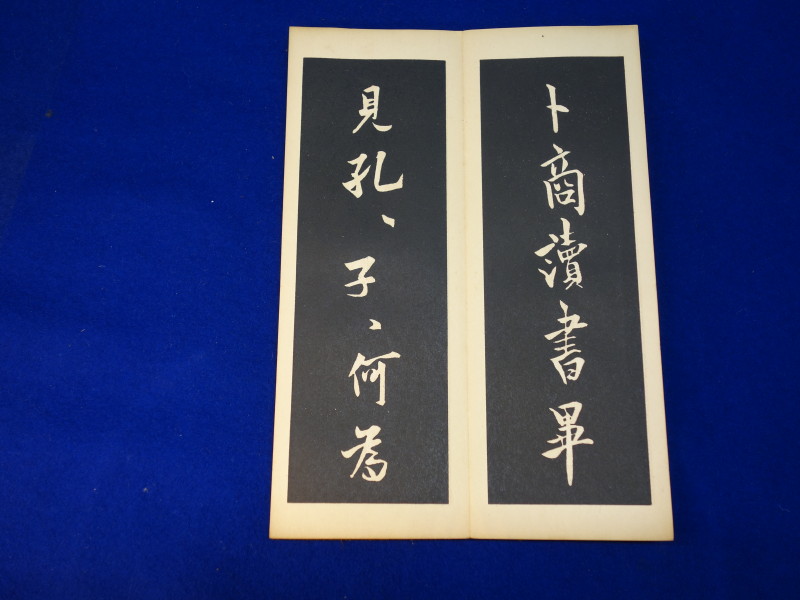 卜商讀書畢
見孔〻子〻何為